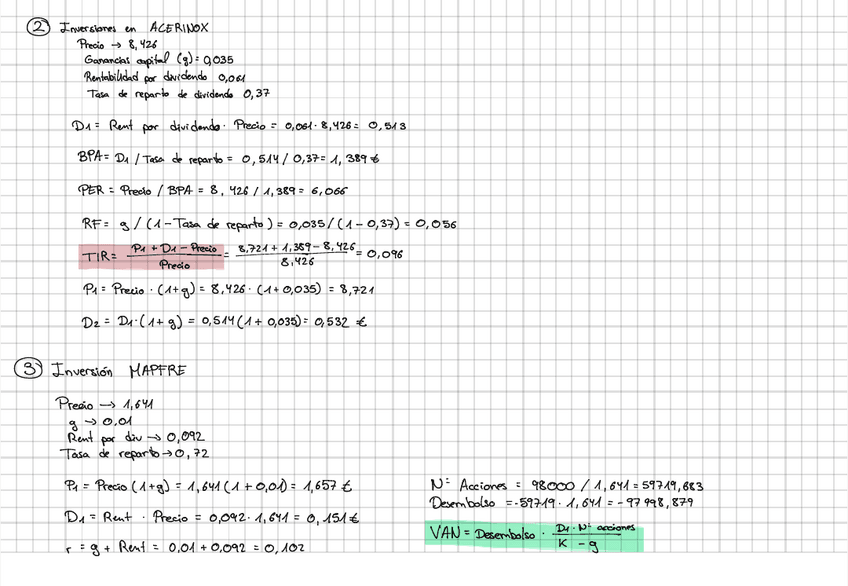 ② Inversiones en ACERINOX
Precio → 8,426
Ganancias capital (g) = 0,035
Rentabilidad por dividendo 0,061
Tasa de reparto de dividendo 0,37
D1 = Rent por dividendo · Precio = 0,061 · 8,426 = 0,513
BPA = D1 / Tasa de reparto = 0,514 / 0,37 = 1,389 €
PER = Precio / BPA = 8,426 / 1,389 = 6,066
RF = g / (1 - Tasa de reparto) = 0,035 / (1 - 0,37) = 0,056
TIR = P1 + D1 - Precio / Precio = 8,721 + 1,389 - 8,426 / 8,426 = 0,096
P1 = Precio · (1+g) = 8,426 · (1 + 0,035) = 8,721
D2 = D1 · (1+g) = 0,514 (1 + 0,035) = 0,532 €
③ Inversión MAPFRE
Precio → 1,641
g → 0,01
Rent por div → 0,092
Tasa de reparto → 0,72
P1 = Precio (1+g) = 1,641 (1 + 0,01) = 1,657 €
D1 = Rent · Precio = 0,092 · 1,641 = 0,151 €
r = g + Rent = 0,01 + 0,092 = 0,102
Nº Acciones = 98000 / 1,641 = 59719,683
Desembolso = -59719 · 1,641 = -97998,879
VAN = Desembolso · D1 · Nº acciones / K - g